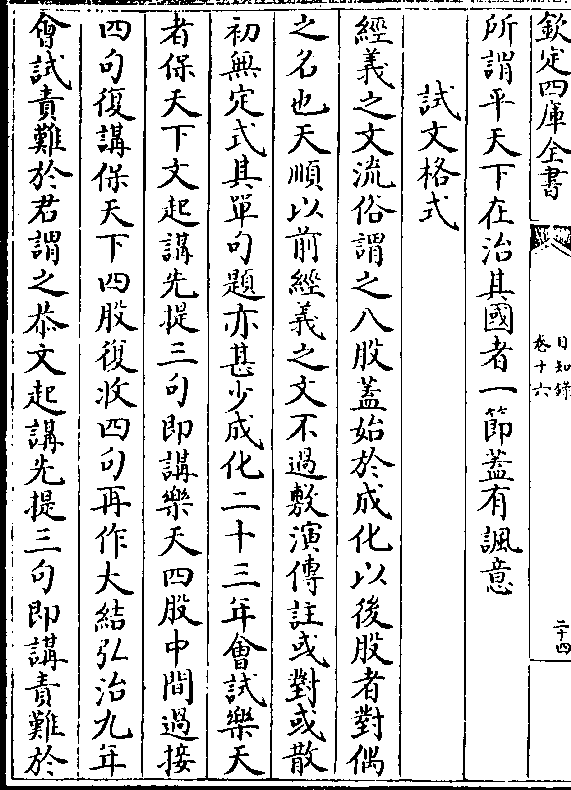 欽定四庫全書
日知錄
卷十六
二十四
所謂平天下在治其國者一節蓋有諷意
試文格式
經義之文流俗謂之八股蓋始於成化以後股者對偶
之名也天順以前經義之文不過敷演傳註或對或散
初無定式其單句題亦甚少成化二十三年會試樂天
者保天下文起講先提三句即講樂天四股中間過接
四句復講保天下四股復收四句再作大結弘治九年
會試責難於君謂之恭文起講先提三句即講責難於